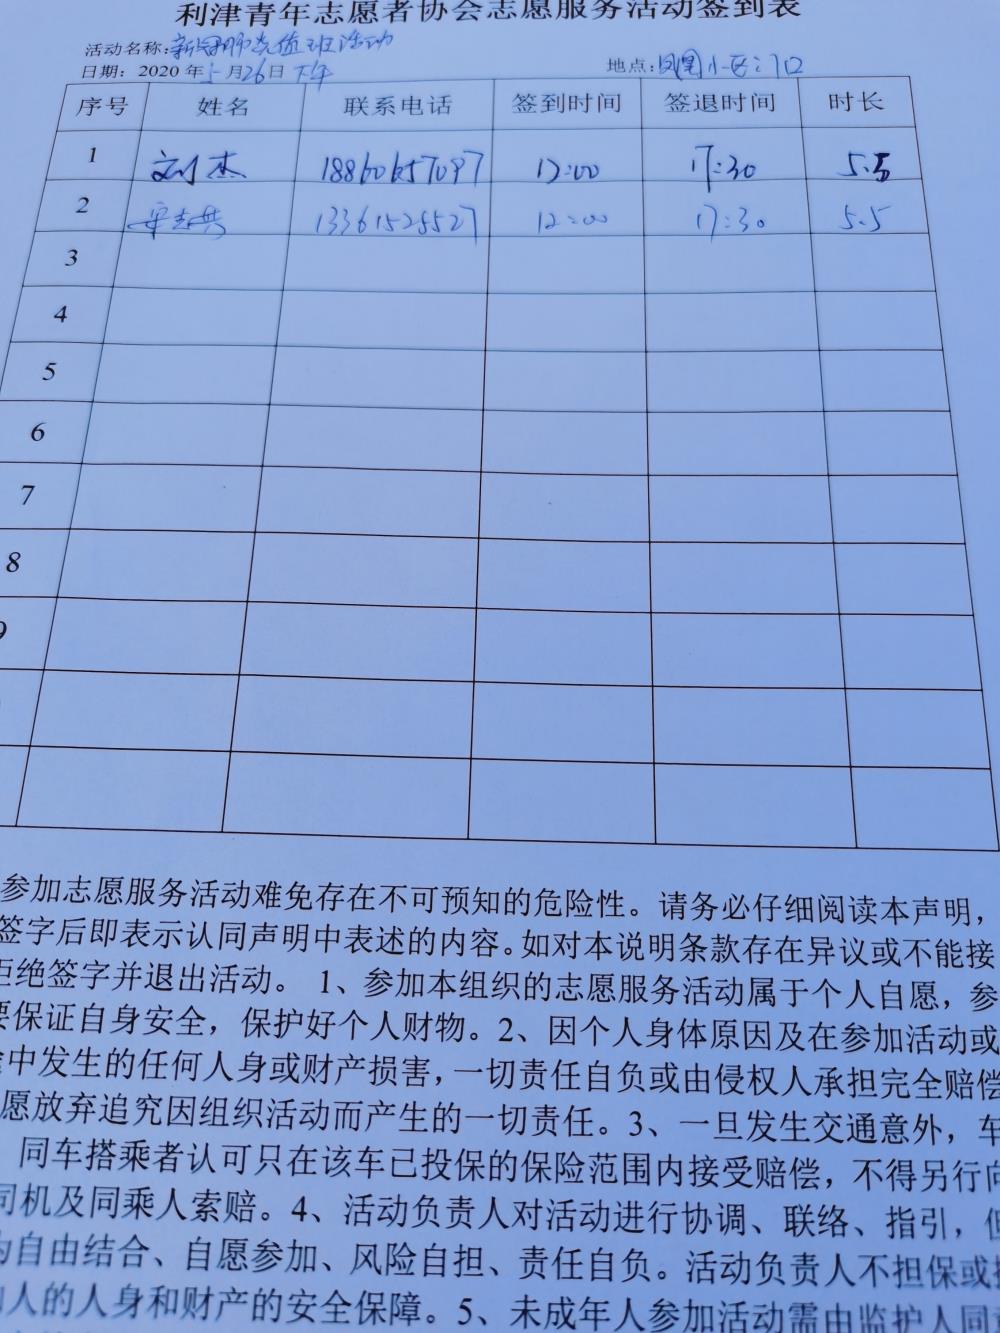 利津青年志愿者协会志愿服务活动签到表
活动名称:新冠肺炎值班活动
日期: 2020年 月26日 下午 地点:凤凰小区门口
序号 姓名 联系电话 签到时间 签退时间 时长
1 刘杰 18860657097 12:00 17:30 5.5
2 13361525527 12:00 17:30 5.5
3
4
5
6
7
8
9
参加志愿服务活动难免存在不可预知的危险性。请务必仔细阅读本声明,
签字后即表示认同声明中表述的内容。如对本说明条款存在异议或不能接
拒绝签字并退出活动。 1、参加本组织的志愿服务活动属于个人自愿,参
要保证自身安全,保护好个人财物。2、因个人身体原因及在参加活动或
途中发生的任何人身或财产损害,一切责任自负或由侵权人承担完全赔偿
愿放弃追究因组织活动而产生的一切责任。3、一旦发生交通意外,车
同车搭乘者认可只在该车已投保的保险范围内接受赔偿,不得另行向
司机及同乘人索赔。4、活动负责人对活动进行协调、联络、指引,但
为自由结合、自愿参加、风险自担、责任自负。活动负责人不担保或
人的人身和财产的安全保障。5、未成年人参加活动需由监护人同